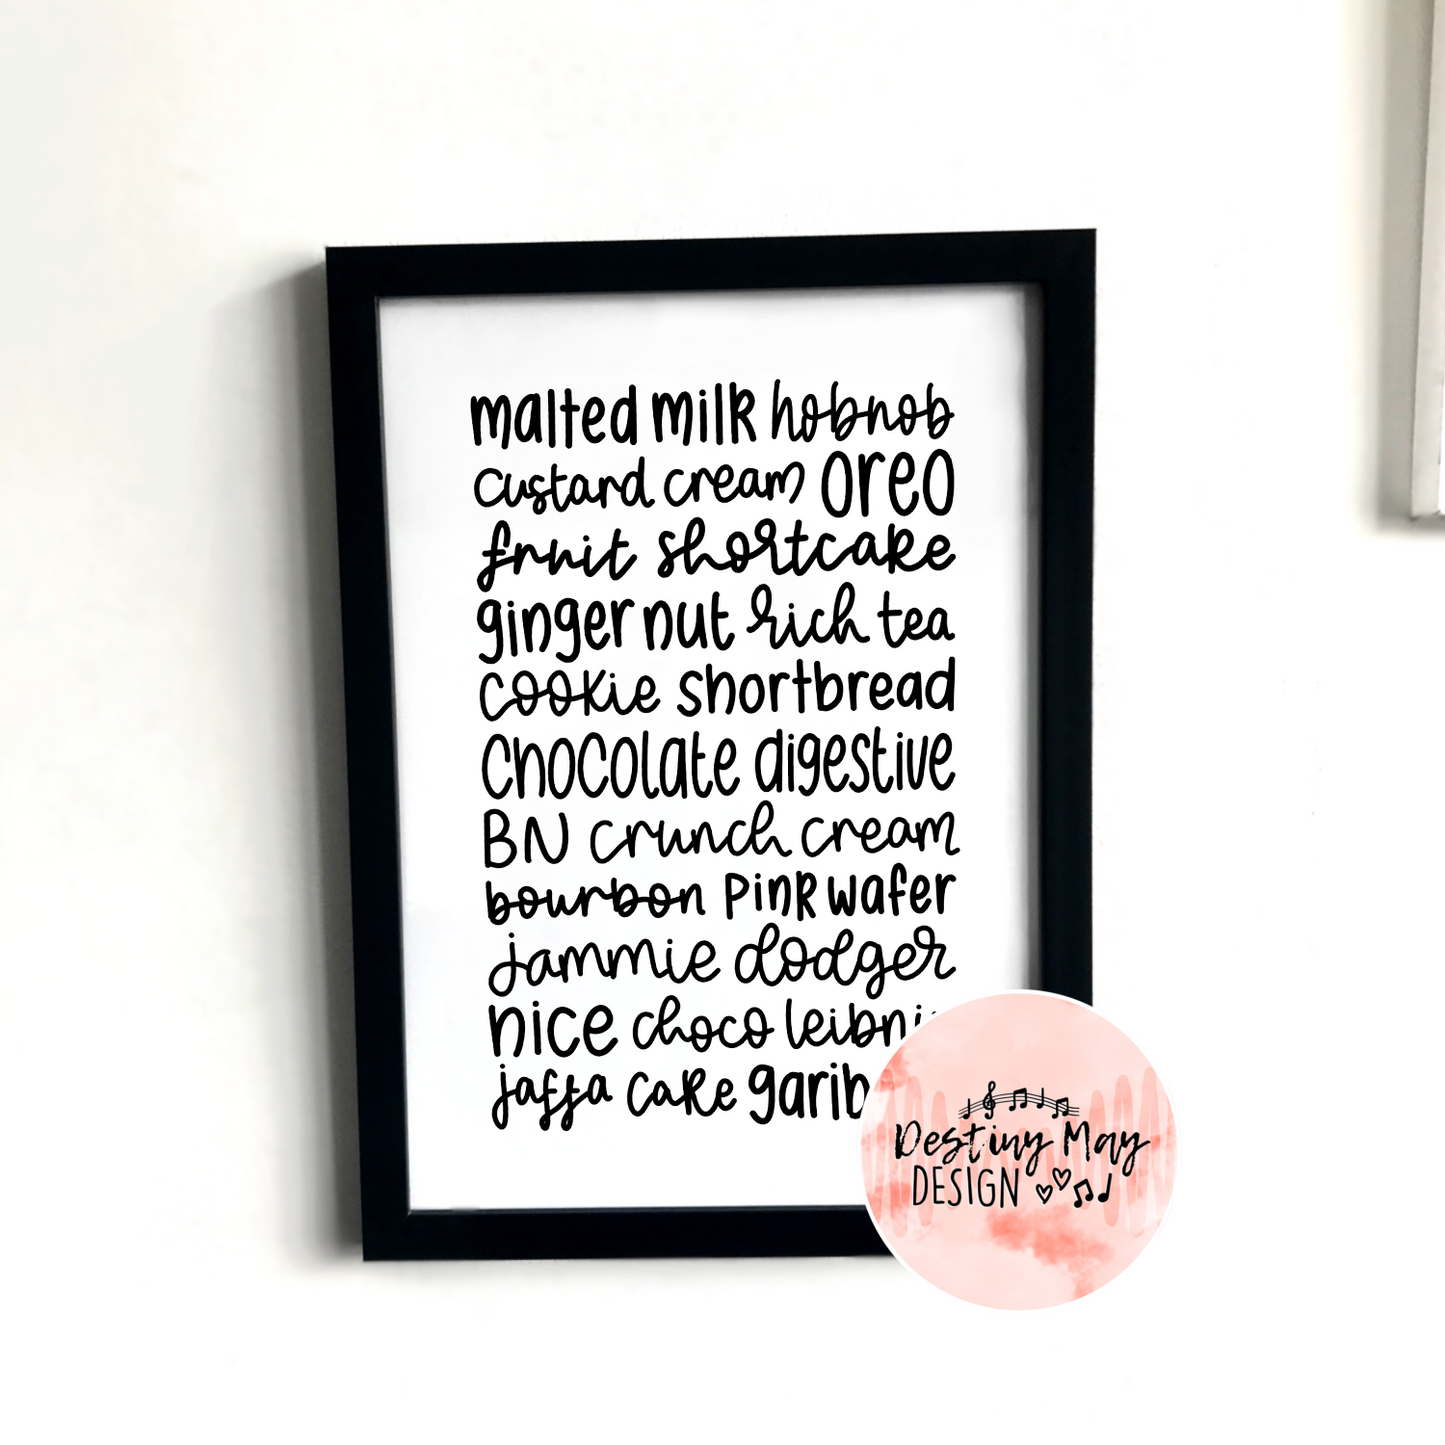 malted milk hobnob
custard cream oreo
fruit shortcake
ginger nut rich tea
cookie shortbread
chocolate digestive
BN crunch cream
bourbon pink wafer
jammie dodger
nice choco
jaffa cake
Destiny May
DESIGN